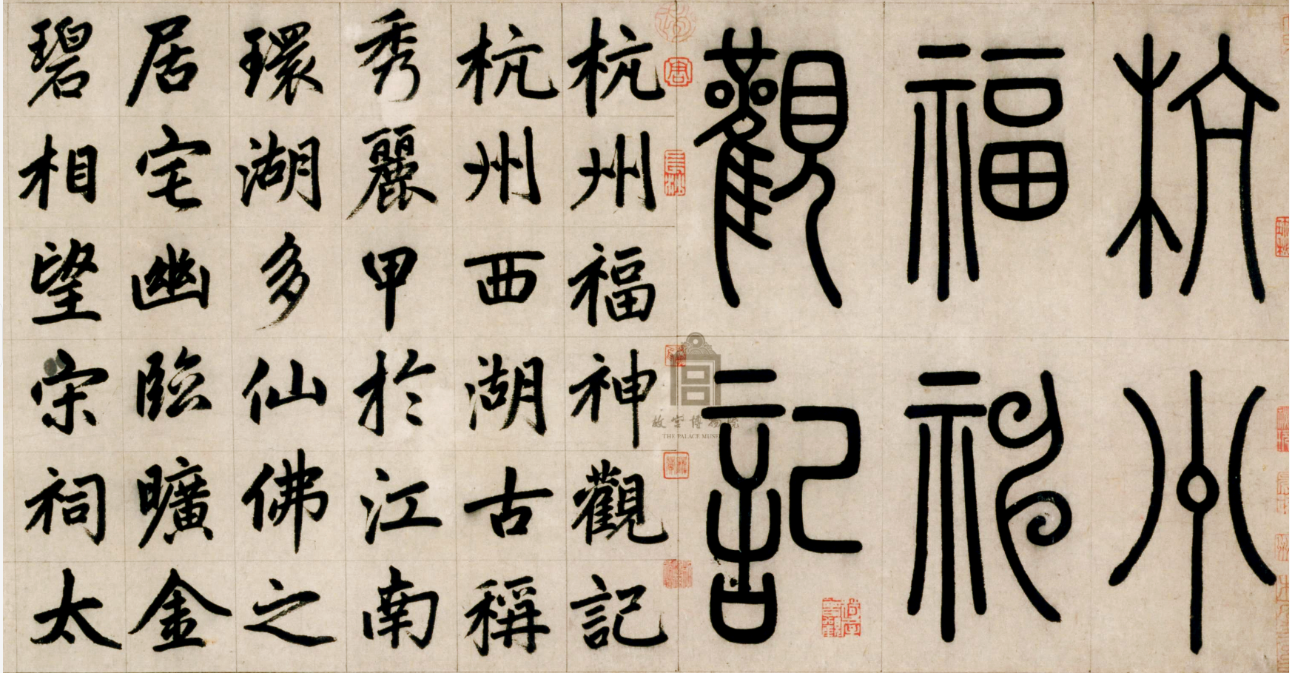 杭州
福神
觀記
杭州福神觀記
杭州西湖古稱
秀麗甲於江南
環湖多仙佛之
居宅幽臨曠金
碧相望宗祠太
故宮博物院
THE PALACE MUSEUM